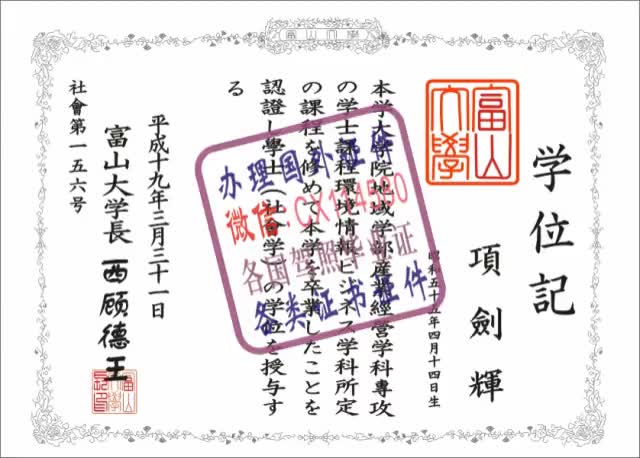 富山大學
学位記
富山大學
項劍輝
昭和五十五年四月十四日生
本学大学院地域学部産業經営学科専攻
の学士課程環境情報ビジネス学科所定
の課程を修めて本学を卒業したことを
認證し學士(社會学)の学位を授与す
る
平成十九年三月三十一日
富山大学長 西顾德王
社會第一五六号
办理国外证件
微信:CX114560
各国驾照毕业证
各类证书证件